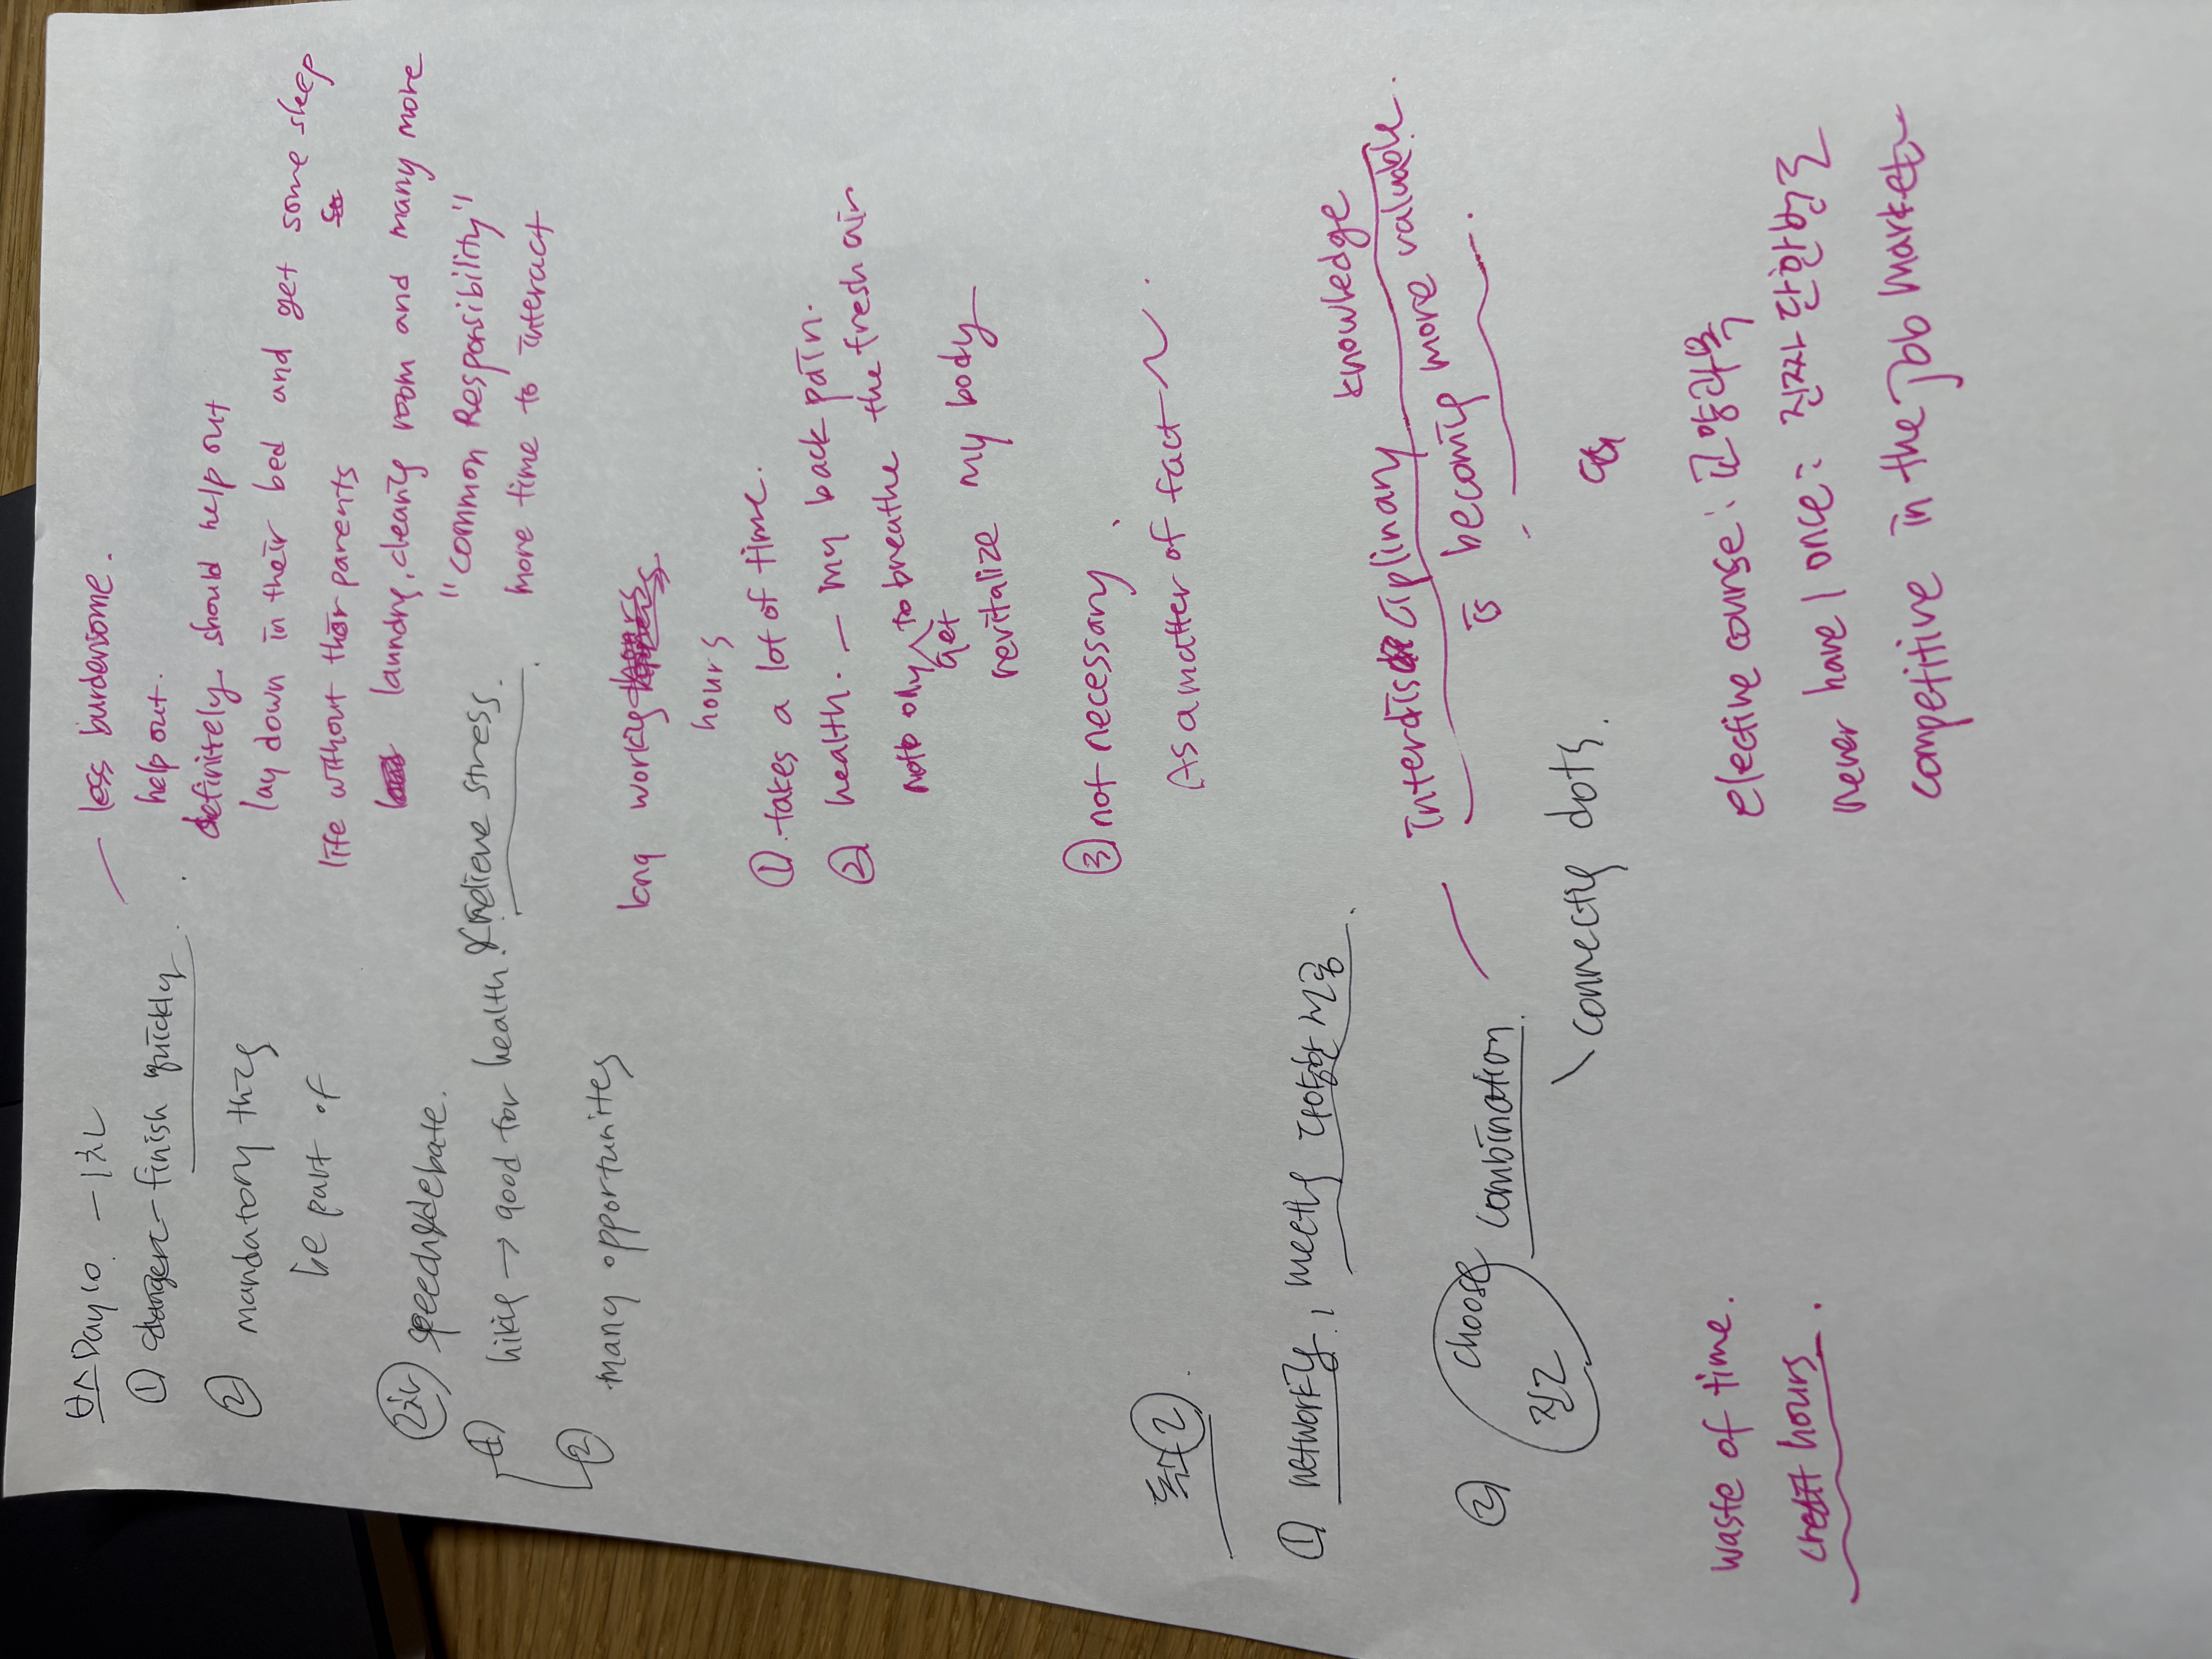 Day10. - 1차
— less burdensome.
① finish quickly
help out.
definitely should help out
② mandatory thing
lay down in their bed and get some sleep
be part of
life without their parents
laundry, cleaning room and many more
②차 speech&debate.
"Common Responsibility"
① hiking → good for health. & relieve stress.
more time to interact
② many opportunities
long working
hours
① takes a lot of time.
② health. — my back pain.
not only to breathe the fresh air
get
revitalize my body
③ not necessary
As a matter of fact ~.
②
① networking, meeting 다양한
knowledge
② choose combination — Interdisciplinary
is becoming more valuable.
connecting dots.
waste of time.
elective course: 교양과목
credit hours.
never have I once: 진짜 단 한번도
competitive in the job market